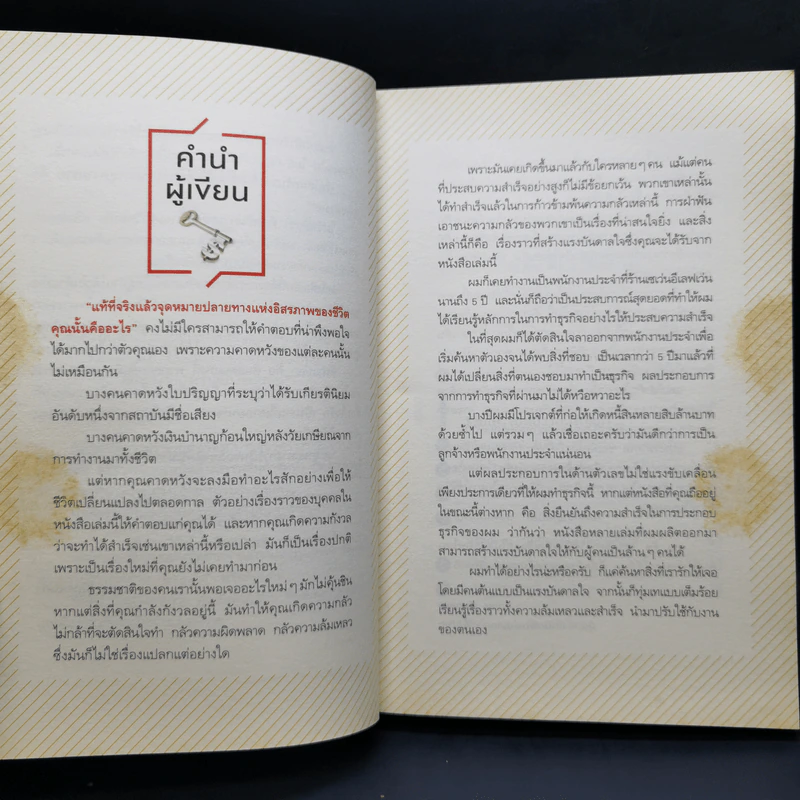 คำนำ
ผู้เขียน
"แท้ที่จริงแล้วจุดหมายปลายทางแห่งอิสรภาพของชีวิต
คุณนั้นคืออะไร" คงไม่มีใครสามารถให้คำตอบที่น่าพึงพอใจ
ได้มากไปกว่าตัวคุณเอง เพราะความคาดหวังของแต่ละคนนั้น
ไม่เหมือนกัน
บางคนคาดหวังใบปริญญาที่ระบุว่าได้รับเกียรตินิยม
อันดับหนึ่งจากสถาบันมีชื่อเสียง
บางคนคาดหวังเงินบำนาญก้อนใหญ่หลังวัยเกษียณจาก
การทำงานมาทั้งชีวิต
แต่หากคุณคาดหวังจะลงมือทำอะไรสักอย่างเพื่อให้
ชีวิตเปลี่ยนแปลงไปตลอดกาล ตัวอย่างเรื่องราวของบุคคลใน
หนังสือเล่มนี้ให้คำตอบแก่คุณได้ และหากคุณเกิดความกังวล
ว่าจะทำได้สำเร็จเช่นเขาเหล่านี้หรือเปล่า มันก็เป็นเรื่องปกติ
เพราะเป็นเรื่องใหม่ที่คุณยังไม่เคยทำมาก่อน
ธรรมชาติของคนเรานั้นพอเจออะไรใหม่ๆ มักไม่คุ้นชิน
หากแต่สิ่งที่คุณกำลังกังวลอยู่นี้ มันทำให้คุณเกิดความกลัว
ไม่กล้าที่จะตัดสินใจทำ กลัวความผิดพลาด กลัวความล้มเหลว
ซึ่งมันก็ไม่ใช่เรื่องแปลกแต่อย่างใด
เพราะมันเคยเกิดขึ้นมาแล้วกับใครหลายๆ คน แม้แต่คน
ที่ประสบความสำเร็จอย่างสูงก็ไม่มีข้อยกเว้น พวกเขาเหล่านั้น
ได้ทำสำเร็จแล้วในการก้าวข้ามพ้นความกลัวเหล่านี้ การฝ่าฟัน
เอาชนะความกลัวของพวกเขาเป็นเรื่องที่น่าสนใจยิ่ง และสิ่ง
เหล่านี้ก็คือ เรื่องราวที่สร้างแรงบันดาลใจซึ่งคุณจะได้รับจาก
หนังสือเล่มนี้
ผมก็เคยทำงานเป็นพนักงานประจำที่ร้านเซเว่นอีเลฟเว่น
นานถึง 5 ปี และนั่นก็ถือว่าเป็นประสบการณ์สุดยอดที่ทำให้ผม
ได้เรียนรู้หลักการในการทำธุรกิจอย่างไรให้ประสบความสำเร็จ
ในที่สุดผมก็ได้ตัดสินใจลาออกจากพนักงานประจำเพื่อ
เริ่มค้นหาตัวเองจนได้พบสิ่งที่ชอบ เป็นเวลากว่า 5 ปีมาแล้วที่
ผมได้เปลี่ยนสิ่งที่ตนเองชอบมาทำเป็นธุรกิจ ผลประกอบการ
จากการทำธุรกิจที่ผ่านมาไม่ได้หวือหวาอะไร
บางปีผมมีโปรเจกต์ที่ก่อให้เกิดหนี้สินหลายสิบล้านบาท
ด้วยซ้ำไป แต่รวมๆ แล้วเชื่อเถอะครับว่ามันดีกว่าการเป็น
ลูกจ้างหรือพนักงานประจำแน่นอน
แต่ผลประกอบการในด้านตัวเลขไม่ใช่แรงขับเคลื่อน
เพียงประการเดียวที่ให้ผมทำธุรกิจนี้ หากแต่หนังสือที่คุณถืออยู่
ในขณะนี้ต่างหาก คือ สิ่งยืนยันถึงความสำเร็จในการประกอบ
ธุรกิจของผม ว่ากันว่า หนังสือหลายเล่มที่ผมผลิตออกมา
สามารถสร้างแรงบันดาลใจให้กับผู้คนเป็นล้านๆ คนได้
ผมทำได้อย่างไรน่ะหรือครับ ก็แค่ค้นหาสิ่งที่เรารักให้เจอ
โดยมีคนต้นแบบเป็นแรงบันดาลใจ จากนั้นก็ทุ่มเทแบบเต็มร้อย
เรียนรู้เรื่องราวทั้งความล้มเหลวและสำเร็จ นำมาปรับใช้กับงาน
ของตนเอง